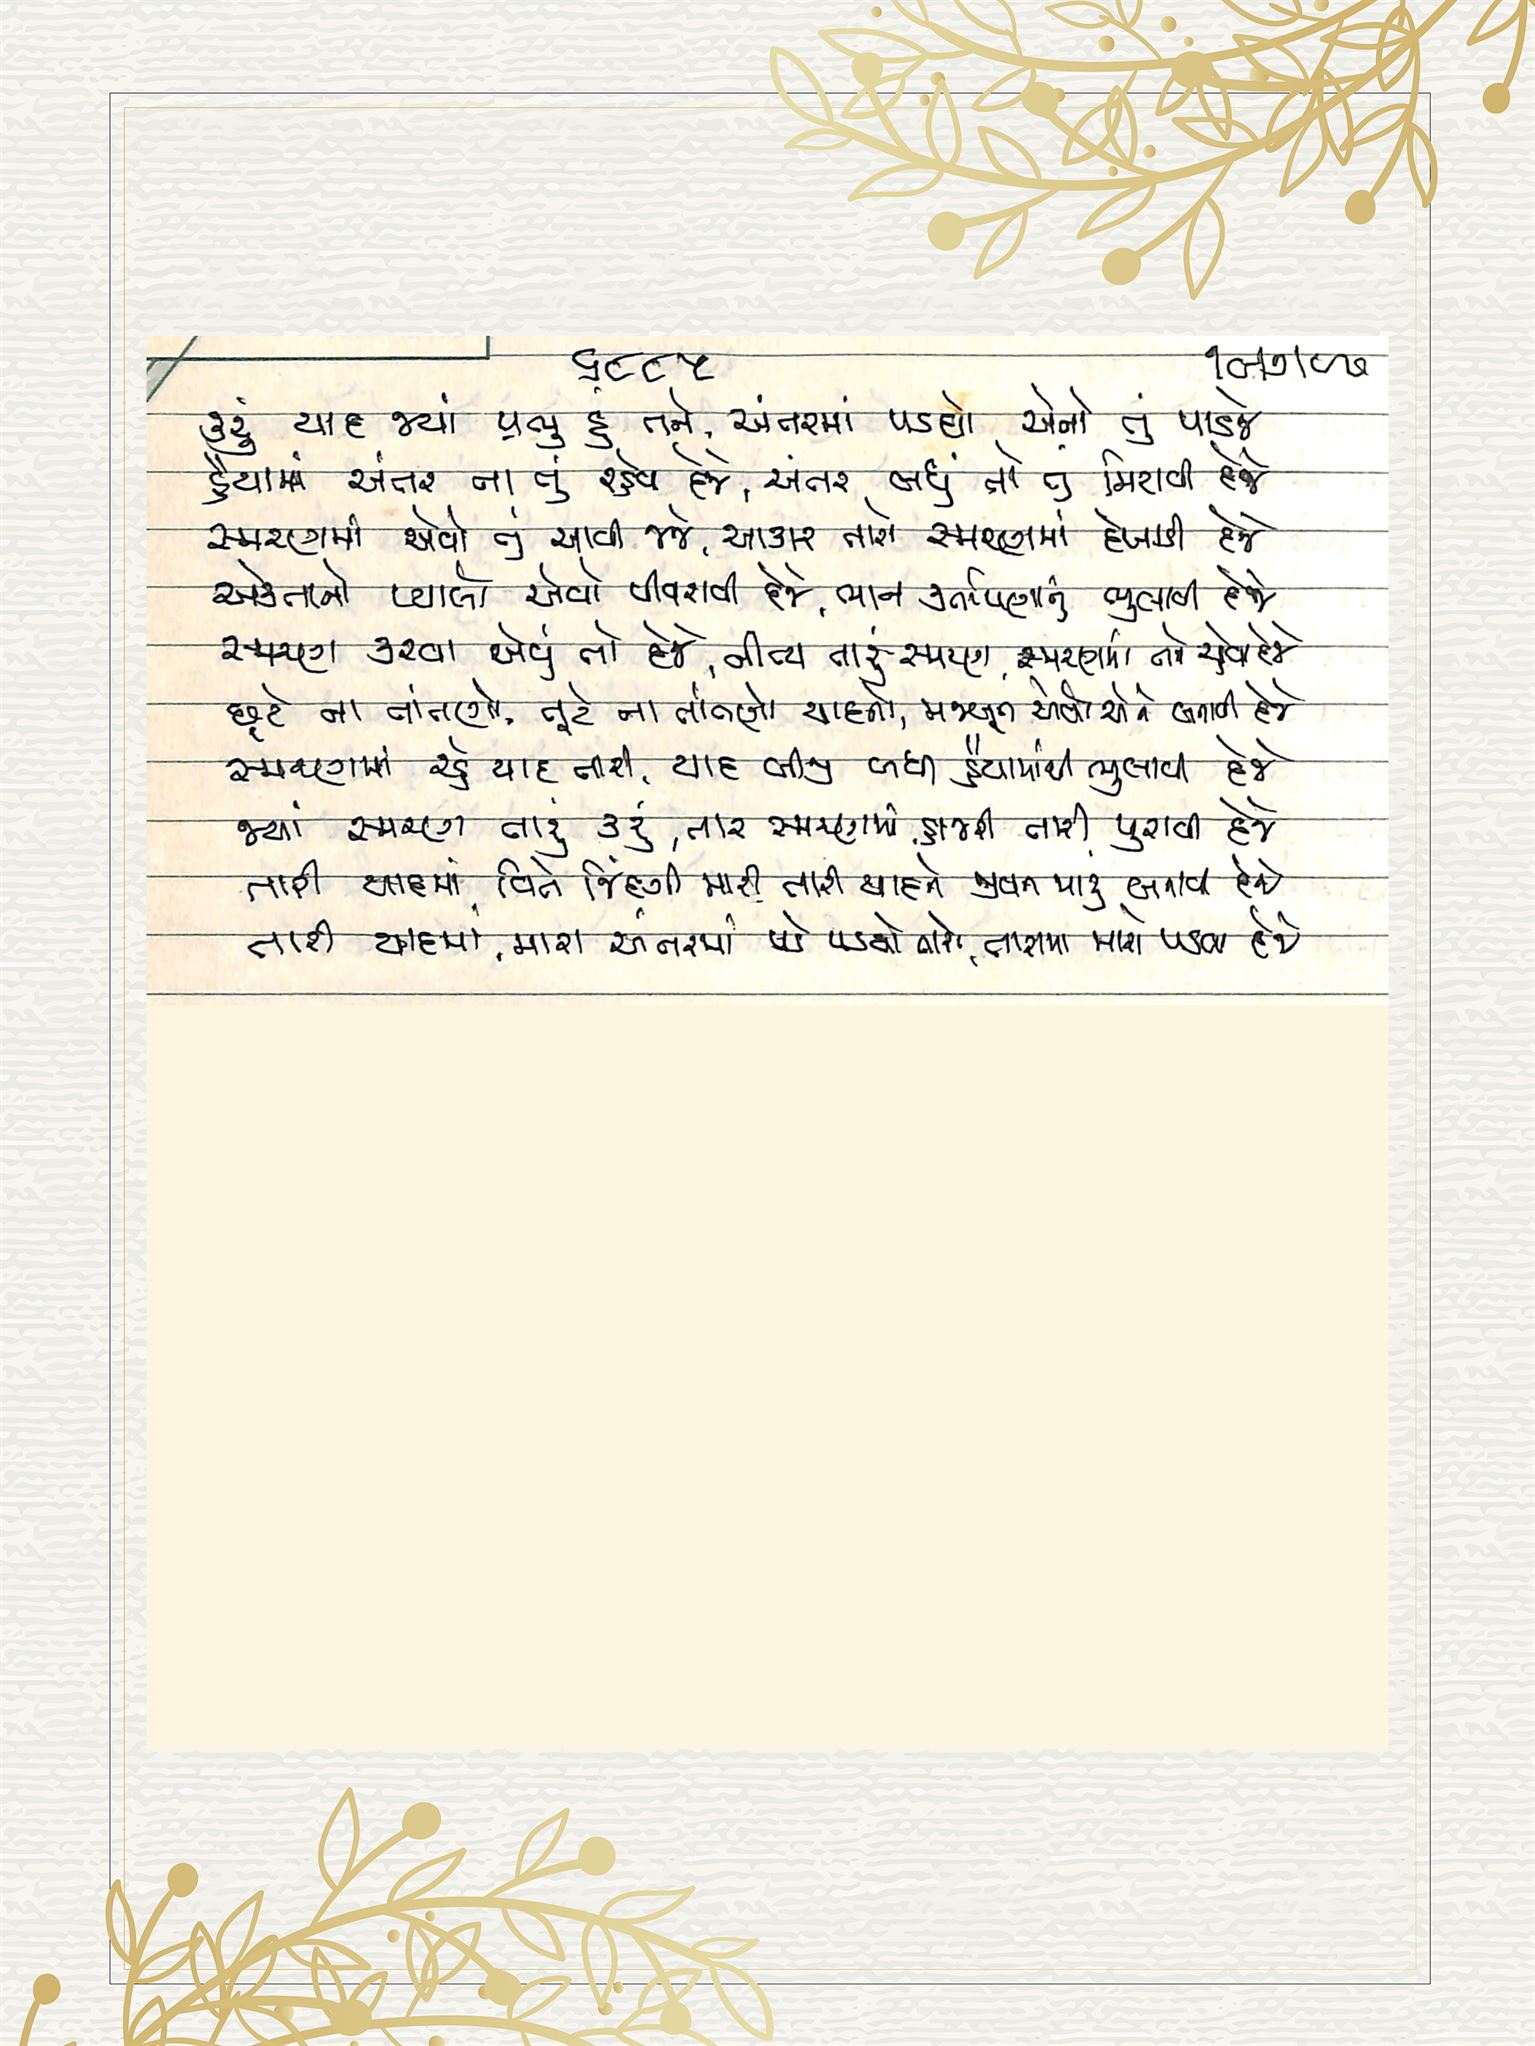 ૬૮૮૫
કરું યાદ જ્યાં પ્રભુ હું તને, અંતરમાં પડઘો એનો તું પાડજે
હૈયામાં અંતર ના તું રહેવા દેજે, અંતર બધું તો તું મિટાવી દેજે
સ્મરણમાં એવો તું આવી જજે, આકાર તારો સ્મરણમાં દેખાડી દેજે
એકતાનો પ્યાલો એવો પીવરાવી દેજે, ભાન કર્તાપણાનું ભુલાવી દેજે
સ્મરણ કરવા એવું તો દેજે, નીત્ય તારું સ્મરણ, સ્મરણમાં તને રહેવા દેજે
છૂટે ના તાંતણો, તૂટે ના તાંતણો યાદનો, મજબૂત એવો એને બનાવી દેજે
સ્મરણમાં રહે યાદ તારી, યાદ બીજી બધી હૈયામાંથી ભુલાવી દેજે
જ્યાં સ્મરણ તારું કરું, તાર સ્મરણમાં હાજરી તારી પુરાવી દેજે
તારી યાદમાં વિતે જિંદગી મારી તારી યાદને જીવન મારું બનાવી દેજે
તારી યાદમાં, મારા અંતરમાં પડે પડઘો તારો, તારામાં મારો પડવા દેજે